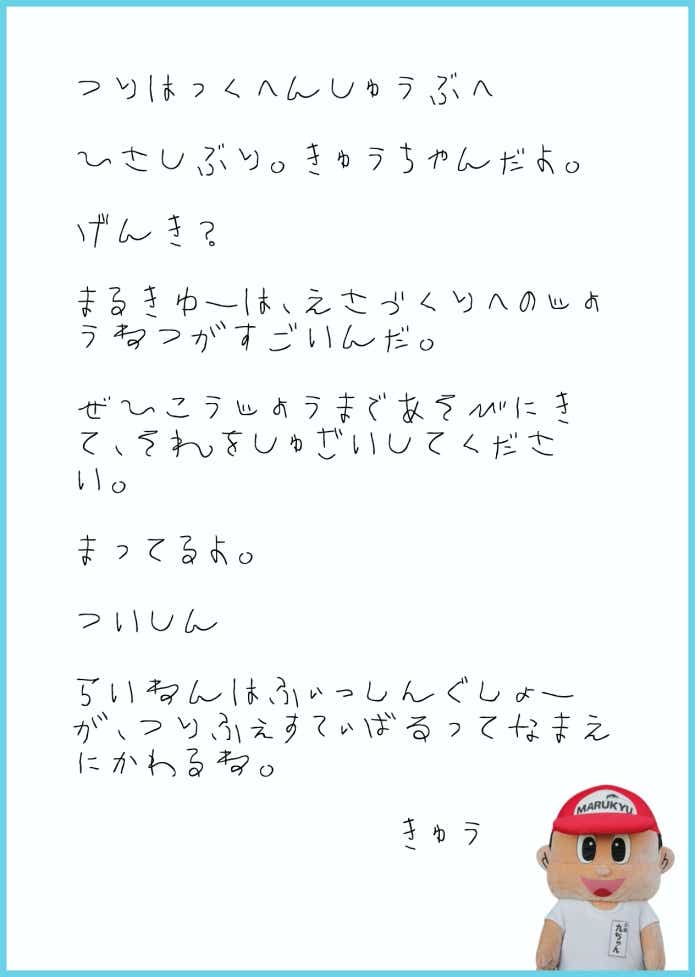 つりはっくへんしゅうぶへ
ひさしぶり。きゅうちゃんだよ。
げんき?
まるきゅーは、えさづくりへのじょ
うねつがすごいんだ。
ぜひこうじょうまであそびにき
て、それをしゅざいしてくださ
い。
まってるよ。
ついしん
らいねんはふぃっしんぐしょー
が、つりふぇすてぃばるってなまえ
にかわるね。
きゅう
MARUKYU
九ちゃん